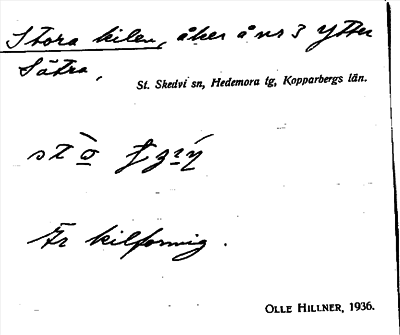 Stora kilen, åker å nr 3 Ytter
Sätra,
St. Skedvi sn, Hedemora tg, Kopparbergs län.
Är kilformig.
OLLE HILLNER, 1936.